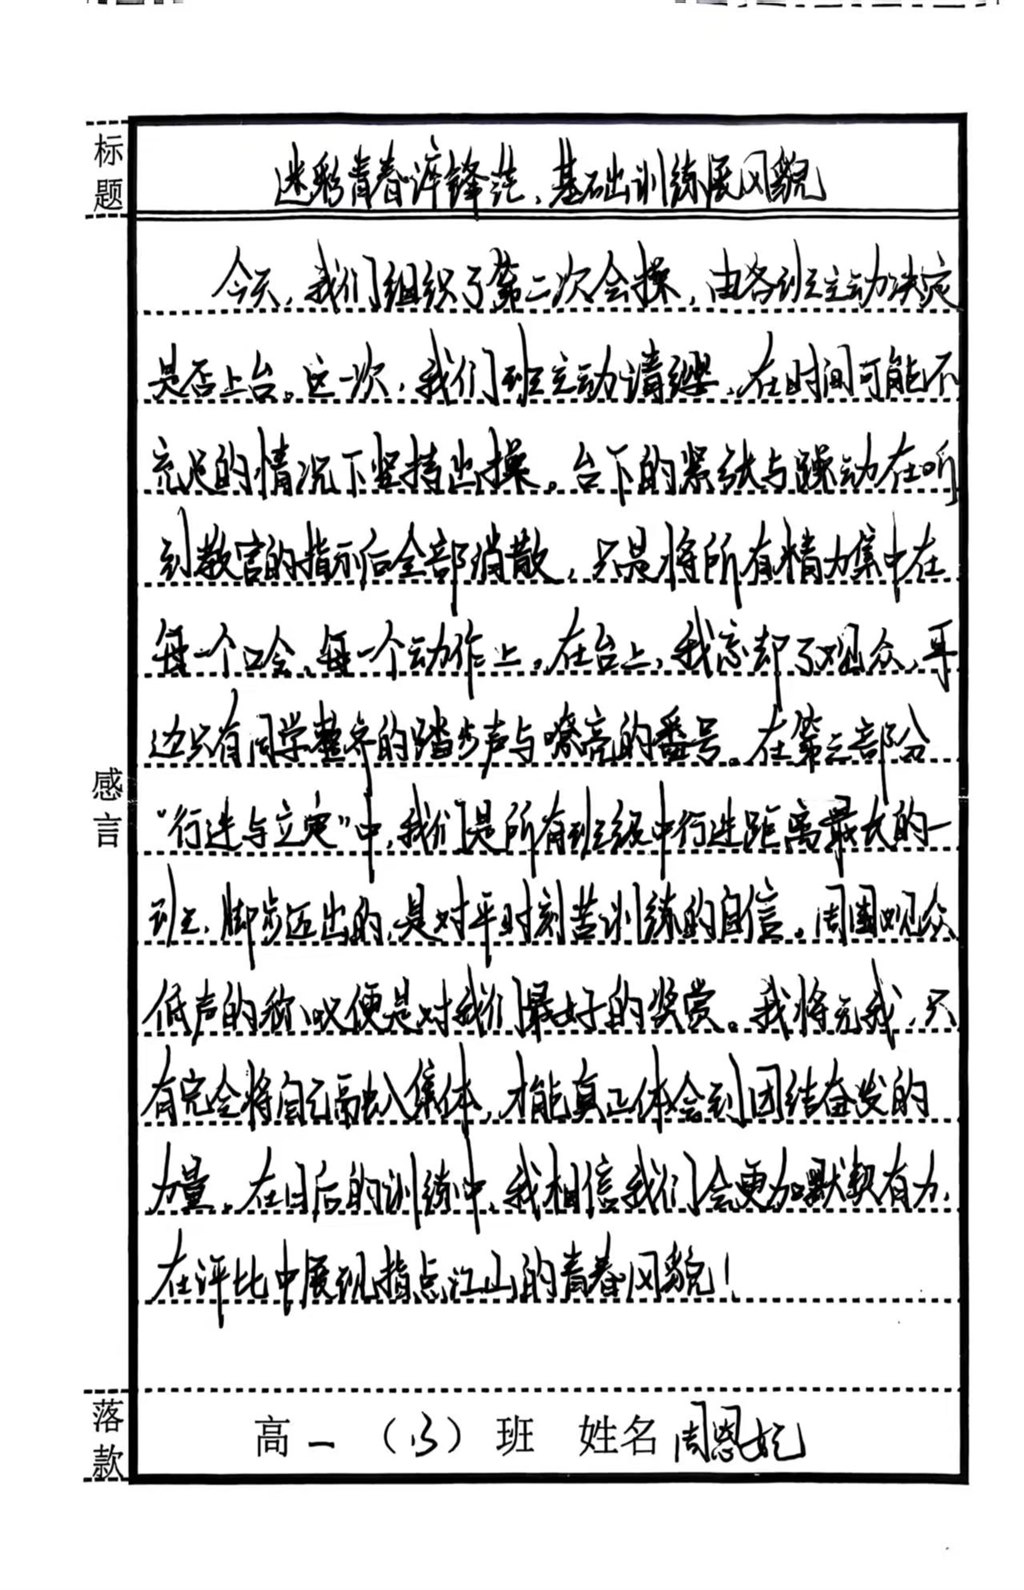 标题
迷彩青春淬锋芒,基础训练展风貌
今天,我们组织了第二次会操,由各班主动决定
是否上台。这一次,我们班主动请缨,在时间可能不
充足的情况下坚持出操。台下的紧张与躁动在听
到教官的指示后全部消散,只是将所有精力集中在
每一个口令、每一个动作上。在台上,我忘却了观众,耳
边只有同学整齐的踏步声与嘹亮的番号。在第三部分
“行进与立定”中,我们是所有班级中行进距离最大的一
班,脚步迈出的,是对平时刻苦训练的自信。周围观众
低声的称叹便是对我们最好的奖赏。我将无我,只
有完全将自己融入集体,才能真正体会到团结奋发的
力量。在日后的训练中,我相信我们会更加默契有力,
在评比中展现指点江山的青春风貌!
感言
落款
高一(13)班 姓名 周恩屹